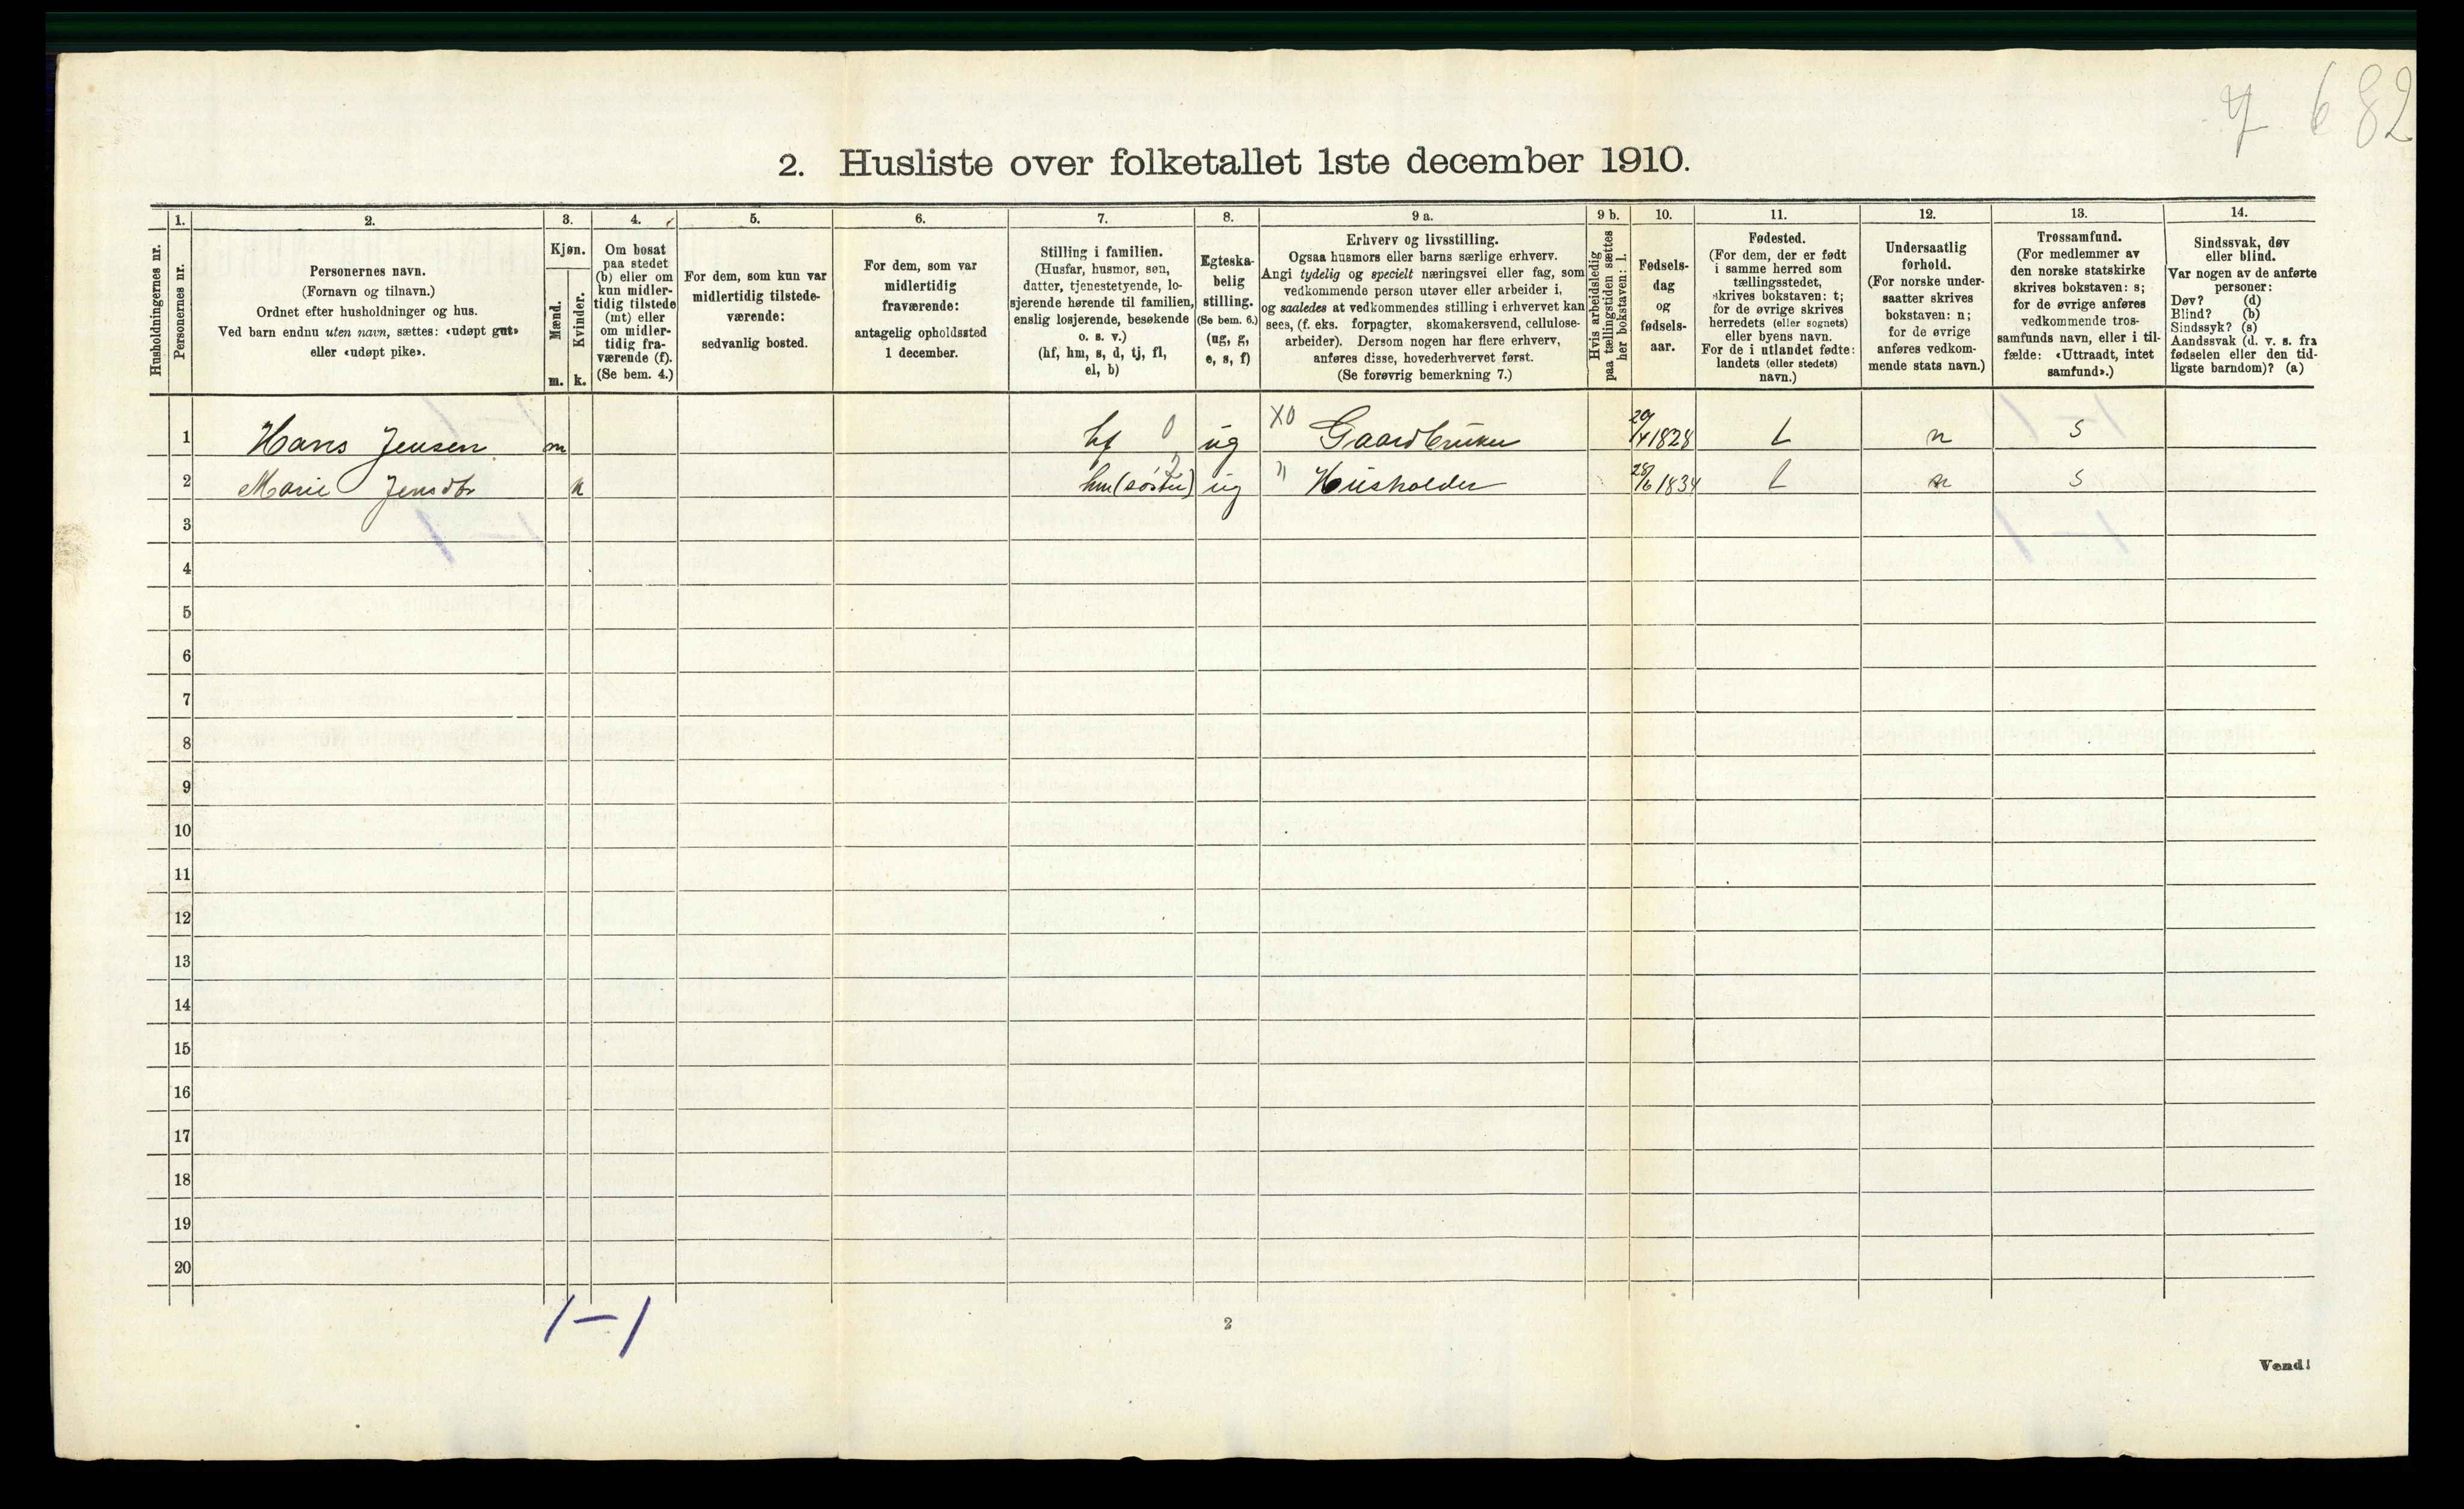 7 682
2. Husliste over folketallet 1ste december 1910.
Husholdningernes nr.
1.
Personernes nr.
2.
Personernes navn.
(Fornavn og tilnavn.)
Ordnet efter husholdninger og hus.
Ved barn endnu uten navn, sættes: «udøpt gut»
eller «udøpt pike».
3.
Kjøn.
Mænd.
Kvinder.
m.
k.
4.
Om bosat
paa stedet
(b) eller om
kun midler-
tidig tilstede
(mt) eller
om midler-
tidig fra-
værende (f).
(Se bem. 4.)
5.
For dem, som kun var
midlertidig tilstede-
værende:
sedvanlig bosted.
6.
For dem, som var
midlertidig
fraværende:
antagelig opholdssted
1 december.
7.
Stilling i familien.
(Husfar, husmor, søn,
datter, tjenestetyende, lo-
sjerende hørende til familien,
enslig losjerende, besøkende
o. s. v.)
(hf, hm, s, d, tj, fl,
el, b)
8.
Egteska-
belig
stilling.
(Se bem. 6.)
(ug, g,
e, s, f)
9 a.
Erhverv og livsstilling.
Ogsaa husmors eller barns særlige erhverv.
Angi tydelig og specielt næringsvei eller fag, som
vedkommende person utøver eller arbeider i,
og saaledes at vedkommendes stilling i erhvervet kan
sees, (f. eks. forpagter, skomakersvend, cellulose-
arbeider). Dersom nogen har flere erhverv,
anføres disse, hovederhvervet først.
(Se forøvrig bemerkning 7.)
9 b.
Hvis arbeidsledig
paa tællingstiden sættes
her bokstaven: l.
10.
Fødsels-
dag
og
fødsels-
aar.
11.
Fødested.
(For dem, der er født
i samme herred som
tællingsstedet,
skrives bokstaven: t;
for de øvrige skrives
herredets (eller sognets)
eller byens navn.
For de i utlandet fødte:
landets (eller stedets)
navn.)
12.
Undersaatlig
forhold.
(For norske under-
saatter skrives
bokstaven: n;
for de øvrige
anføres vedkom-
mende stats navn.)
13.
Trossamfund.
(For medlemmer av
den norske statskirke
skrives bokstaven: s;
for de øvrige anføres
vedkommende tros-
samfunds navn, eller i til-
fælde: «Uttraadt, intet
samfund».)
14.
Sindssvak, døv
eller blind.
Var nogen av de anførte
personer:
Døv? (d)
Blind? (b)
Sindssyk? (s)
Aandssvak (d. v. s. fra
fødselen eller den tid-
ligste barndom)? (a)
1 Hans Jensen m hf 0 ug X0 Gaardbruker 29/4 1828 t n s
2 Marie Jensdtr k hm (søster) ug " Husholder 28/6 1834 t n s
3
4
5
6
7
8
9
10
11
12
13
14
15
16
17
18
19
20
1 – 1
2
Vend!